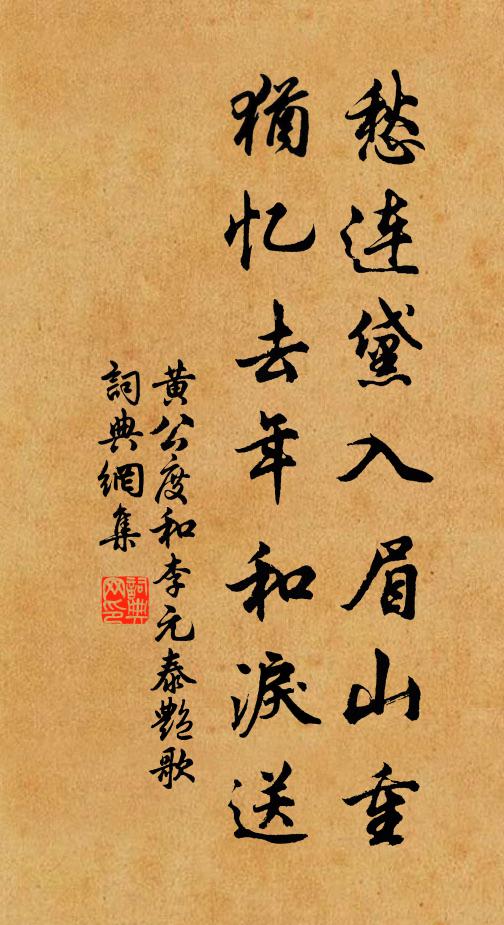 愁连黛入眉山重
猶忆去年和淚送
黄公度和李元泰艷歌
詞典網集
詞典网印